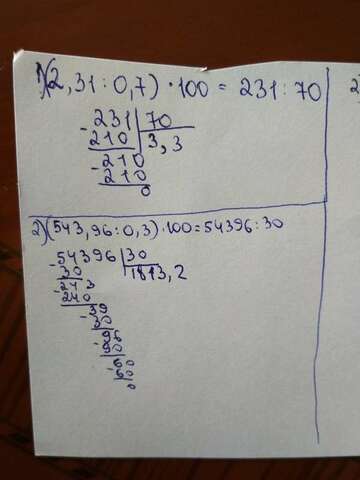 1)(2,31:0,7)·100=231:70
-231|70
210 3,3
-210
210
0
2)(543,96:0,3)·100=54396:30
-54396|30
30 1813,2
-243
240
-39
30
-96
90
-60
60
0
2